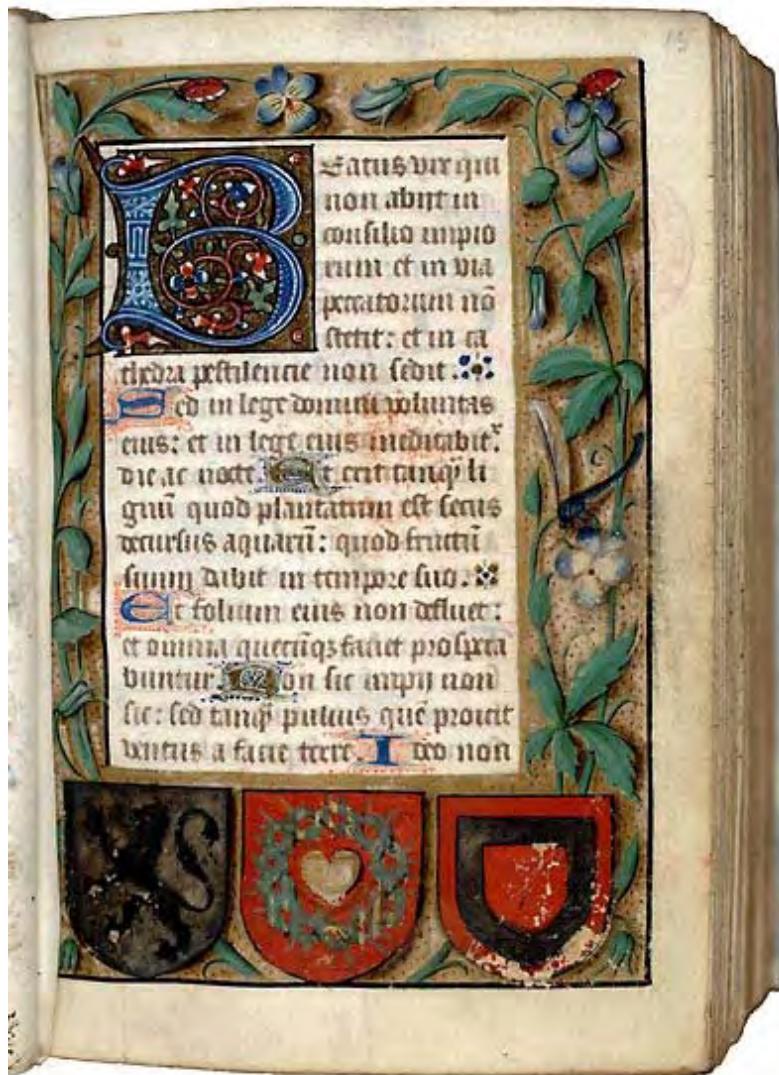 13
Beatus vir qui
non abijt in
consilio impio
rum et in via
peccatorum nō
stetit: et in ca
thedra pestilencie non sedit.
Sed in lege domini voluntas
eius: et in lege eius meditabitˀ
die ac nocte Et erit tanqꝫ li
gnū quod plantatum est secus
decursus aquarū: quod fructū
suum dabit in tempore suo.
Et folium eius non defluet:
et omnia quecūqꝫ faciet prospera
buntur Non sic impij non
sic: sed tanqꝫ puluis quē proicit
ventus a facie terre. Ideo non